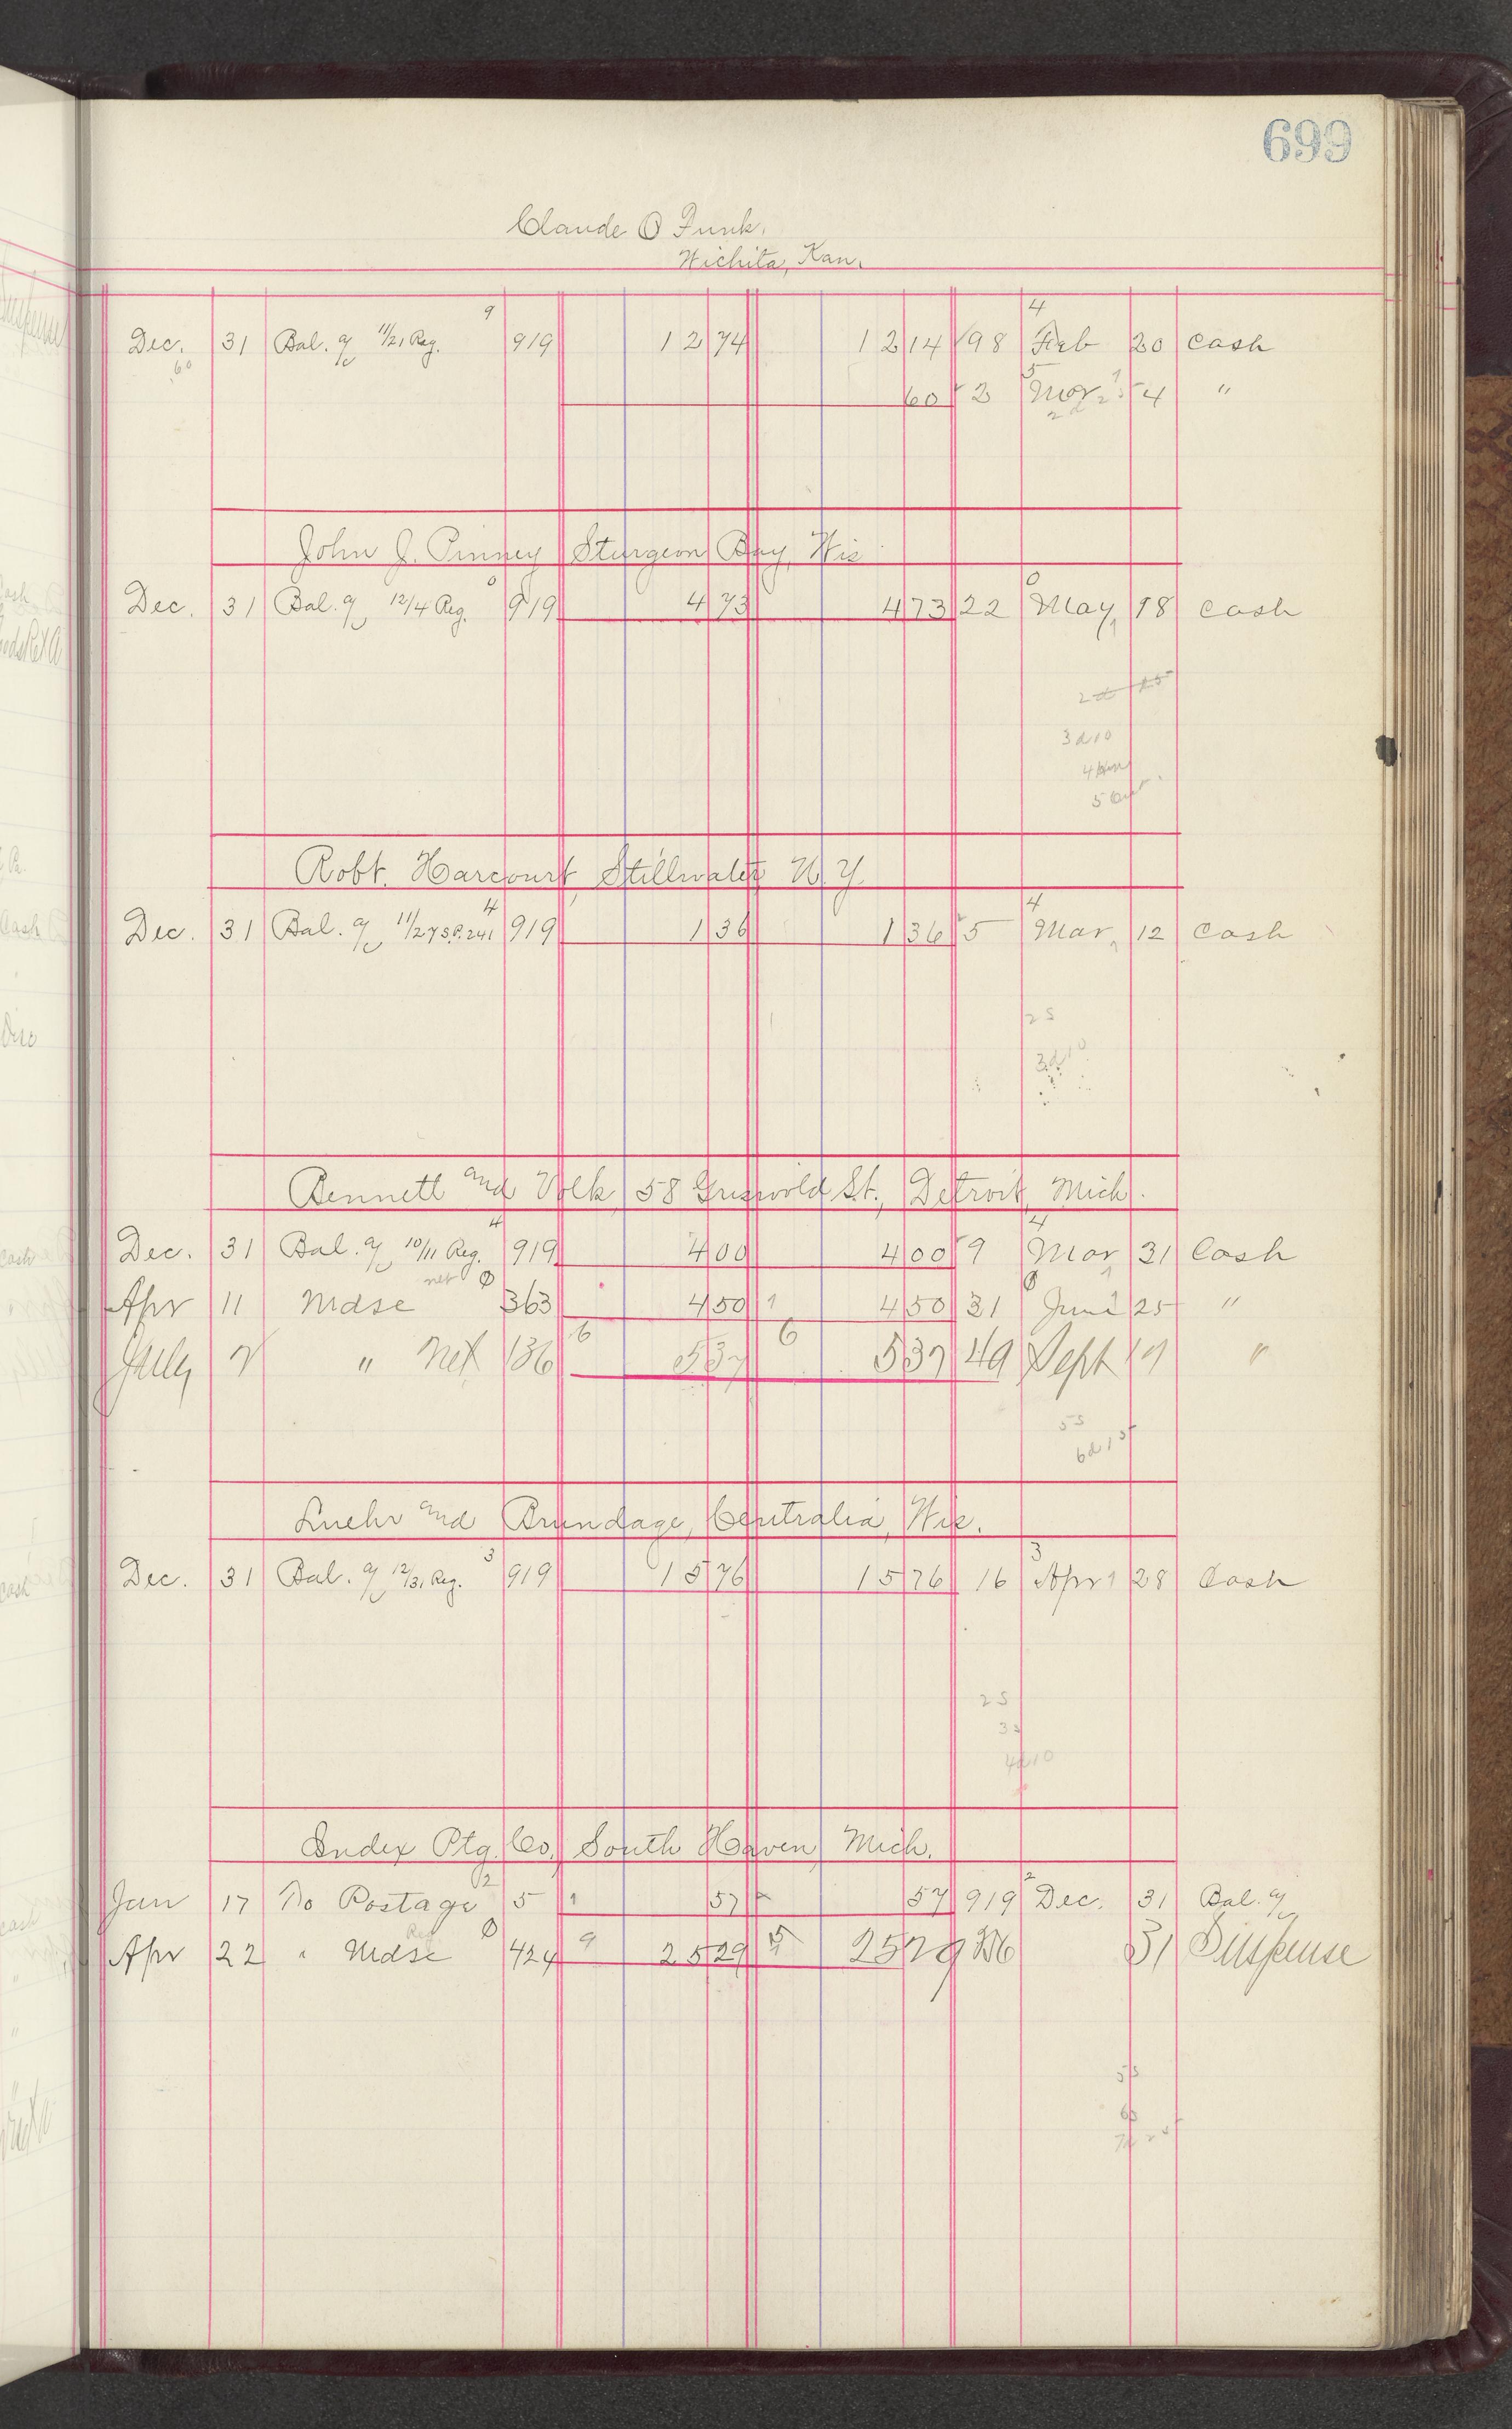 699
Claude O Funk,
Wichita, Kan.
9 4
Dec. 31 Bal. a/c 11/21 Reg. 919 12 74 12 14 98 Feb 20 Cash
60 5
60 2 Mar 4 "
John J. Pinney Sturgeon Bay, Wis
0 0
Dec. 31 Bal. a/c 12/4 Reg. 919 4 73 4 73 22 May 18 Cash
2d 15
3d10
4
5
Robt. Harcourt, Stillwater N.Y.
4 4
Dec. 31 Bal. a/c 11/27 S.P. 241 919 1 36 1 36 5 Mar 12 Cash
2 S
3d10
Bennett and Volk, 58 Griswold St., Detroit, Mich.
4 4
Dec. 31 Bal. a/c 10/11 Reg. 919 4 00 4 00 9 Mar 31 Cash
Apr 11 Mdse net 0 363 4 50 1 4 50 31 0 June 25 "
July 7 " Net 136 6 5 37 6 5 37 49 Sept 17 "
5 S
6d15
Luehr and Brundage, Centralia, Wis.
3 3
Dec. 31 Bal. a/c 12/31 Reg. 919 15 76 15 76 16 Apr 28 Cash
2 S
3 S
4d10
Index Ptg. Co., South Haven, Mich.
2 2
Jan 17 To Postage 5 1 57 57 919 Dec. 31 Bal. a/c
Apr 22 " Mdse 0 424 9 25 29 5 25 29 31 Suspense
5 S
6 S
7d 25